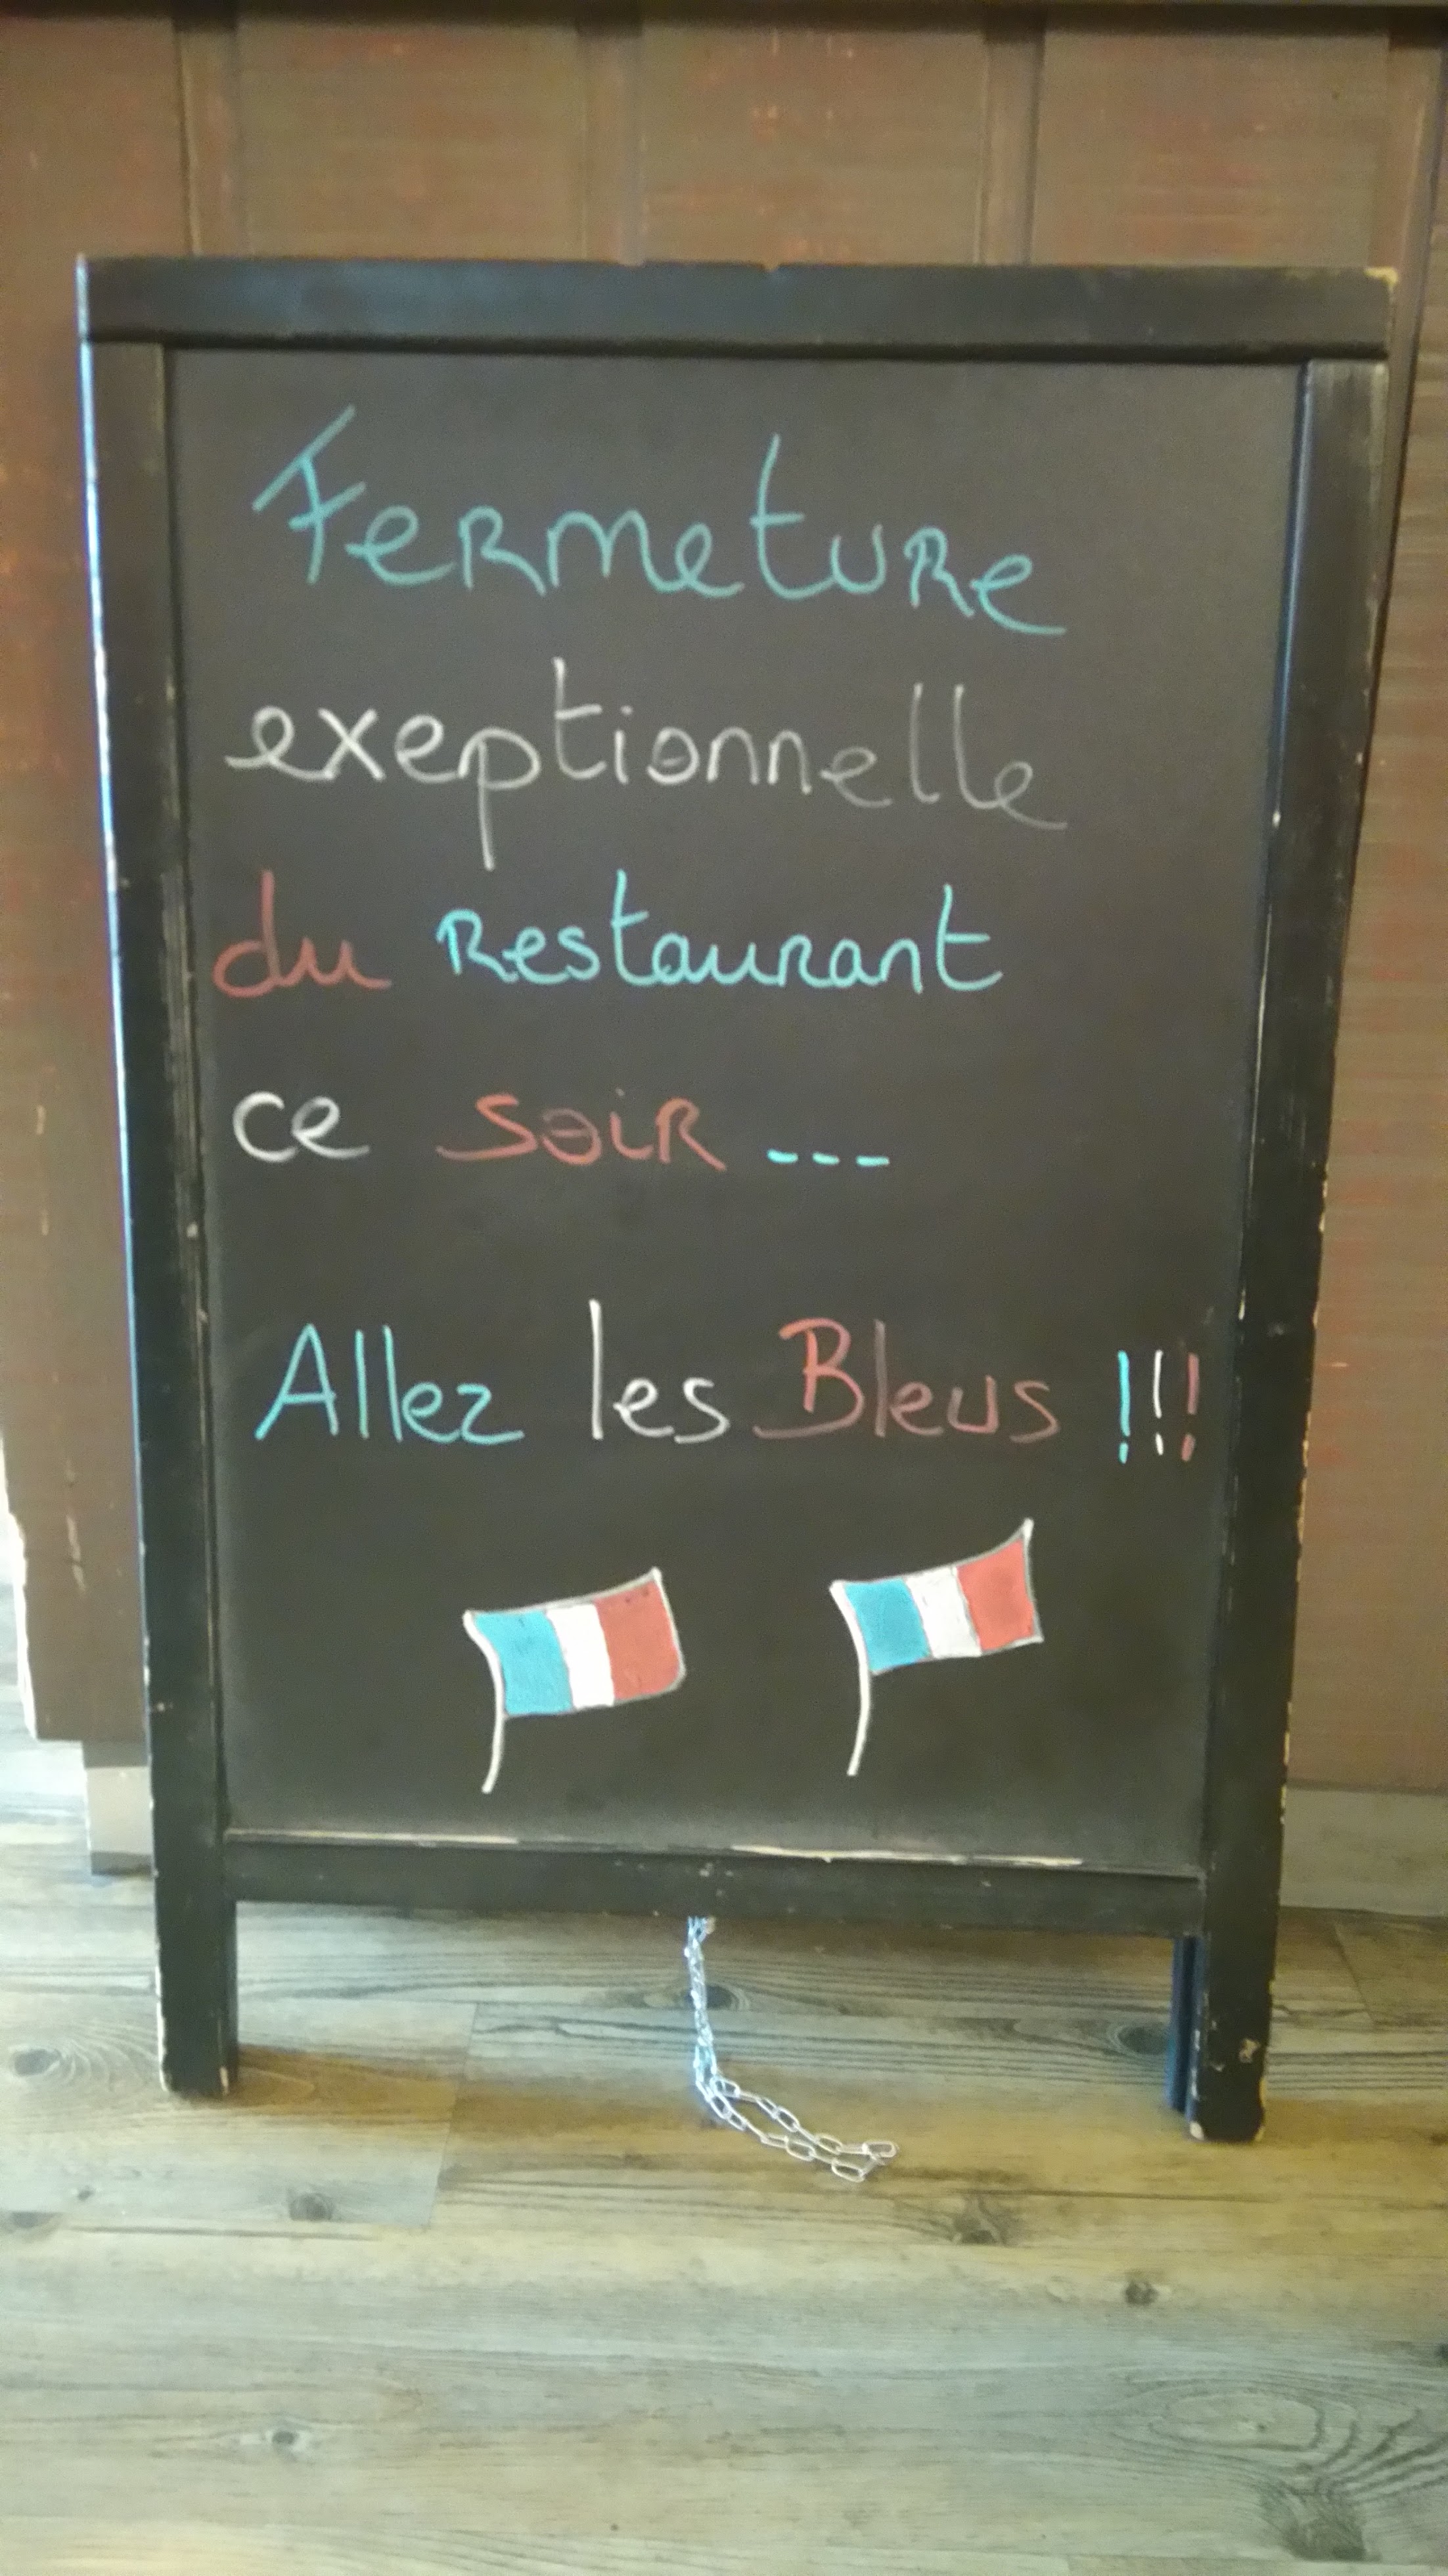 Fermeture
exeptionnelle
du Restaurant
ce soir ...
Allez les Bleus !!!